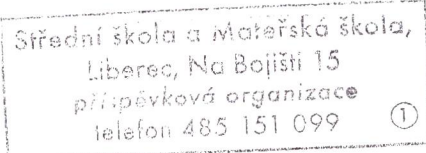 Střední škola a Mateřská škola,
Liberec, Na Bojišti 15
příspěvková organizace
telefon 485 151 099 1